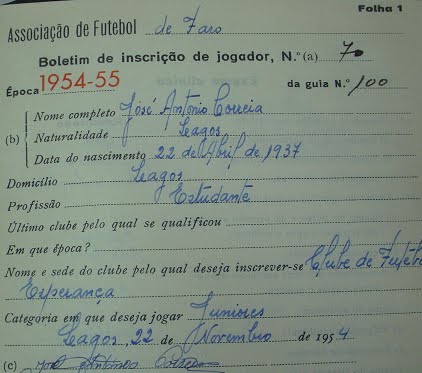 Folha 1
Associação de Futebol de Faro
Boletim de inscrição de jogador, N.º (a) 70
Época 1954-55 da guia N.º 100
(b) Nome completo José António Correia
Naturalidade Lagos
Data do nascimento 22 de Abril de 1937
Domicílio Lagos
Profissão Estudante
Último clube pelo qual se qualificou
Em que época?
Nome e sede do clube pelo qual deseja inscrever-se Clube de Futebo
Esperança
Categoria em que deseja jogar Juniores
Lagos, 22 de Novembro de 1954
(c) José António Correia